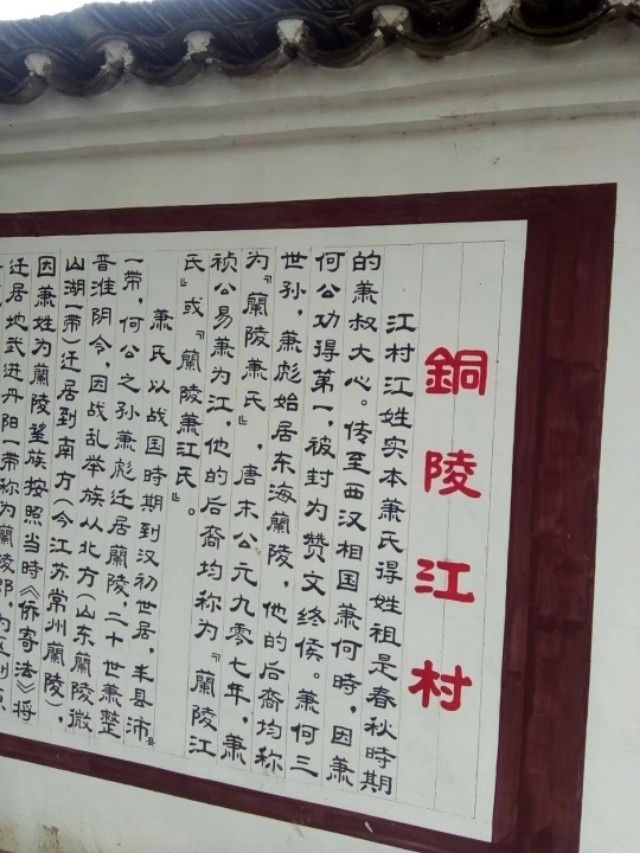 銅陵江村
江村江姓实本萧氏得姓祖是春秋時期
的萧叔大心。传至西汉相国萧何時，因萧
何公功得第一，被封为赞文终侯。萧何三
世孙，萧彪始居东海蘭陵，他的后裔均称
为『蘭陵萧氏』，唐末公元九零七年，萧
祯公易萧为江，他的后裔均称为『蘭陵江
氏』或『蘭陵萧江氏』。
萧氏以战国時期到汉初世居，丰县沛县
一带，何公之孙萧彪迁居蘭陵，二十世萧整
晋淮阴令，因战乱举族从北方(山东蘭陵微
山湖一带)迁居到南方(今江苏常州蘭陵)，
因萧姓为蘭陵望族按照当時《侨寄法》将
迁居地武进丹阳一带称为蘭陵郡，